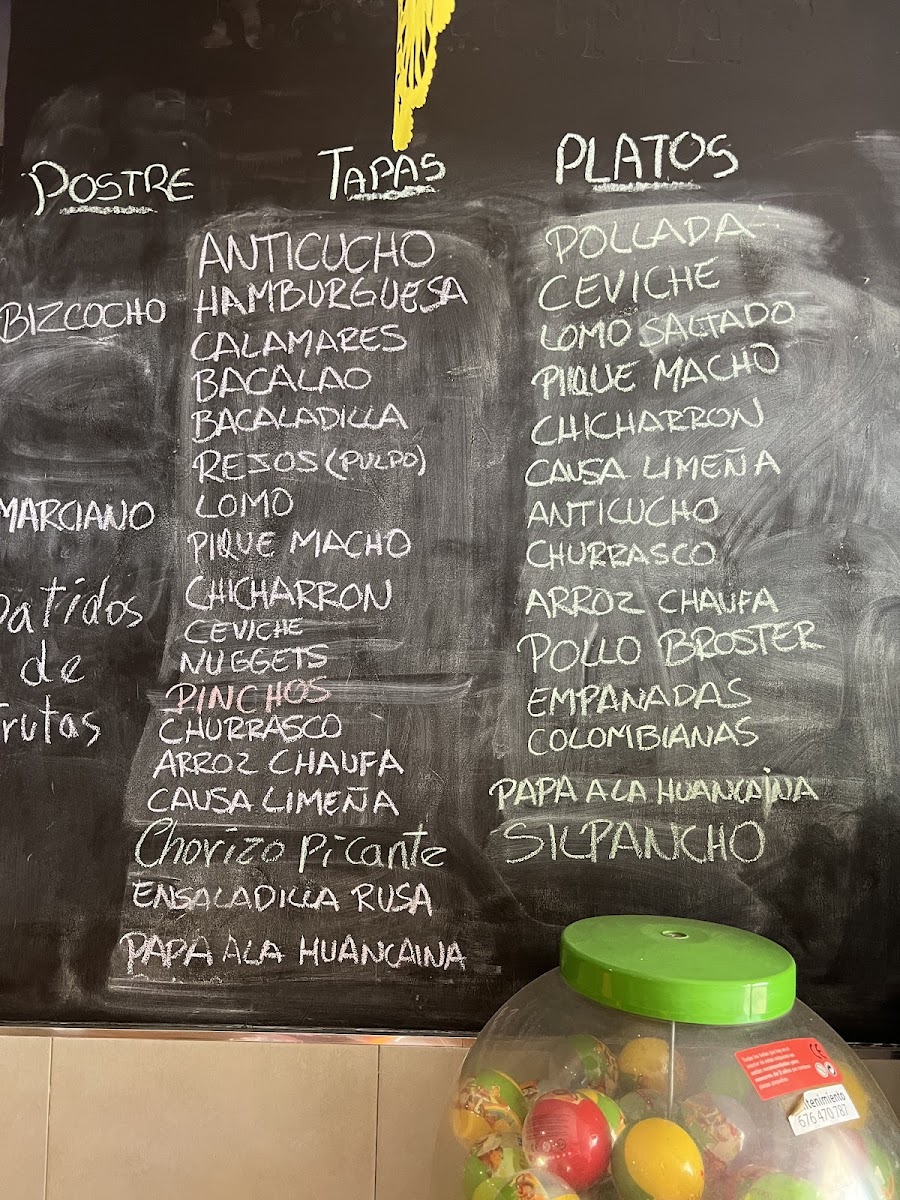 POSTRE
BIZCOCHO
MARCIANO
Batidos
de
frutas
TAPAS
ANTICUCHO
HAMBURGUESA
CALAMARES
BACALAO
BACALADILLA
REJOS (PULPO)
LOMO
PIQUE MACHO
CHICHARRON
CEVICHE
NUGGETS
PINCHOS
CHURRASCO
ARROZ CHAUFA
CAUSA LIMEÑA
Chorizo Picante
ENSALADILLA RUSA
PAPA A LA HUANCAINA
PLATOS
POLLADA
CEVICHE
LOMO SALTADO
PIQUE MACHO
CHICHARRON
CAUSA LIMEÑA
ANTICUCHO
CHURRASCO
ARROZ CHAUFA
POLLO BROSTER
EMPANADAS
COLOMBIANAS
PAPA A LA HUANCAINA
SILPANCHO
CE
ntenimiento
676 470 787